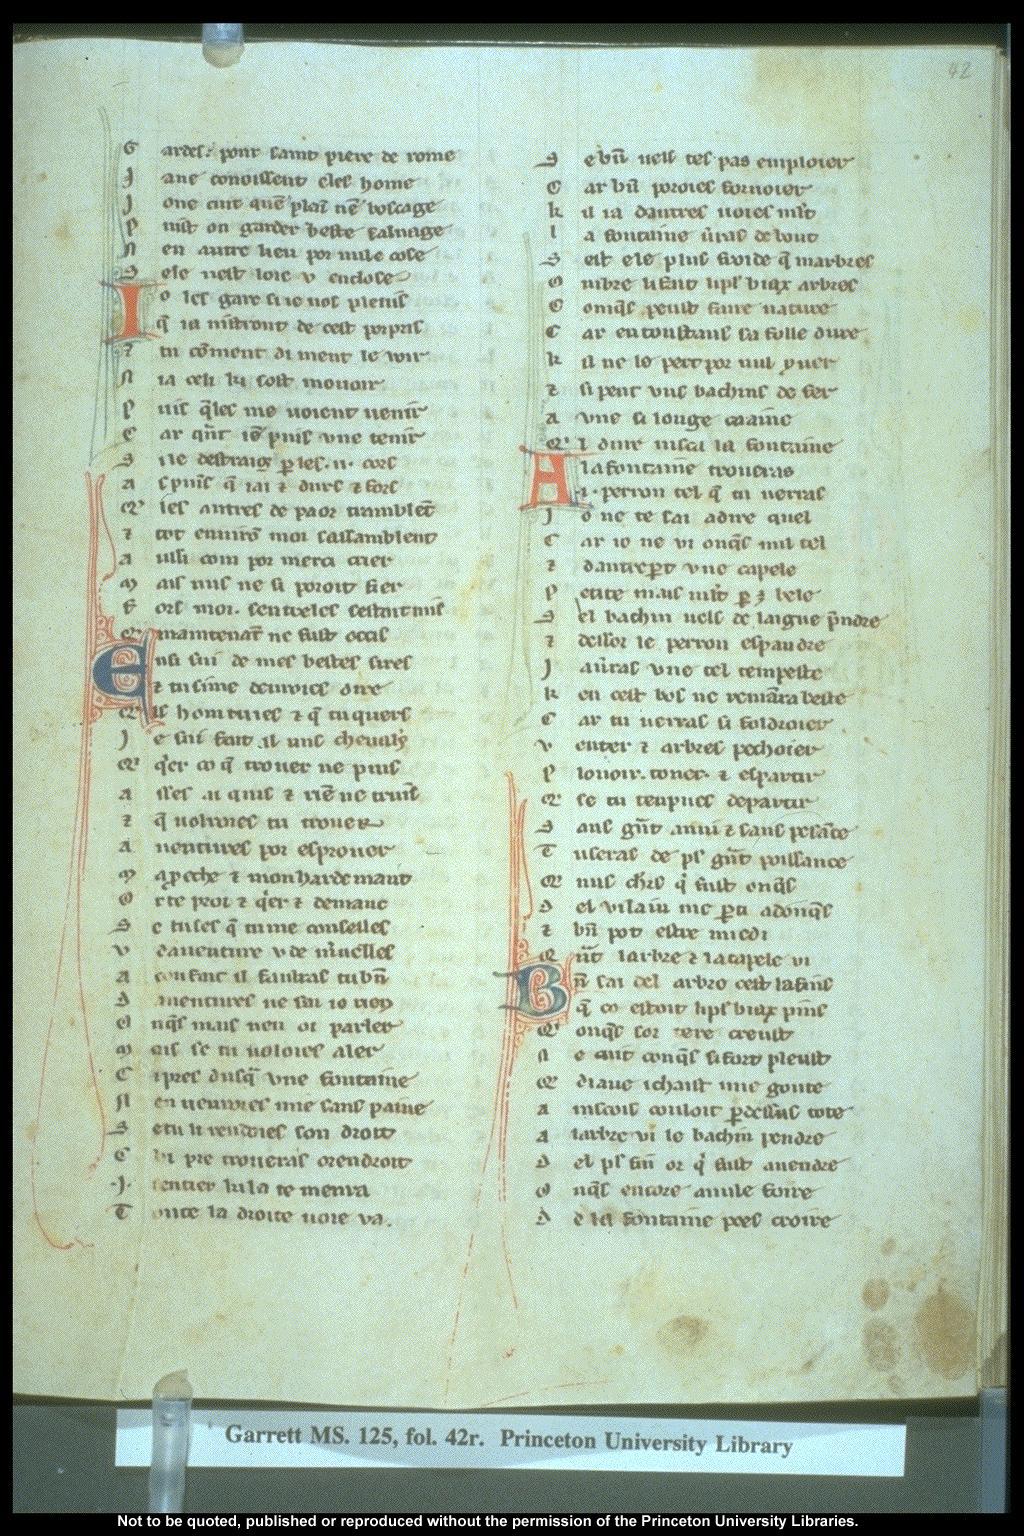 42
G ardes. pour saint piere de rome
J ane conoissent eles home
J one cuit quē plaī nē boscage
P uist on garder beste saluage
N en autre lieu por nule cose
S ele nest loie v enclose
I o les gare si io nos pietuis
q̄ ia nistront de cest porpris
⁊ tu cōment di ment le voir
N ia celi ki sost mouoir
P uis q̄les me uoient uenir
C ar qn̄t io puis vne tenir
a s puis q̄ iai ⁊ durs ⁊ fors
Q les autres de paor tramblēt
⁊ tot enuirō moi sassamblent
a ussi com por merci crier
M ais nus ne si poroit fier
F ors moi. sentreles sestoit mis
Q maintenāt ne fust ocis
E nsi sui de mes bestes sires
⁊ tu me deuries dire
Q ls hom tu ies ⁊ q̄ tu quers
J e sui fait il uns cheualrs
Q qier co q̄ trouer ne puis
a sses ai quis ⁊ riē ne truis
⁊ q̄ uolroies tu trouer
a uentures por esprouer
M a proeche ⁊ mon hardement
O r te proi ⁊ qier ⁊ demanc
S e tu ses q̄ tu me conselles
v dauenture v de mruelles
a co fait il fauras tu bn̄
D auentures ne sai io rien
N nqs mais nen oi parler
M ais se tu uoloies aler
C i pres dusq̄ vne fontaine
N en uenroies mie sans paine
S e tu li rendoies son droit
C hi pre troueras orendroit
.J. sentier ki la te menra
T oute la droite uoie va.
S e bn̄ uels tes pas emploier
C ar bn̄ poroies foruoier
k il i a dautres uoies mlt
l a fontaine vras de bout
S est ele plus froide q̄ marbres
O mbre li fait li plus biax arbres
C onqs peust faire nature
C ar en tous tans sa folle dure
k il ne le pert por nul yuer
⁊ si pent vns bachins de fer
a vne si longe caaine
Q i dure iusca la fontaine
A la fontaine troueras
.i. perron tel q̄ tu uerras
J o ne te sai a dire quel
C ar io ne vi onqs nul tel
⁊ dautre part vne capele
P etite mais mlt p est bele
S el bachin uels de laigue prndre
⁊ desor le perron espandre
J a uras vne tel tempeste
k en cest bos ne remanra beste
C ar tu uerras si foldroier
v enter ⁊ arbres pechoier
P louoir. toner. ⁊ espartir
Q se tu ten pues departir
S ans grnt anui ⁊ sans pesāce
T u seras de plus grnt poissance
Q nus chrs qi fust onqs
D el vilain me parti adonqs
⁊ bn̄ pot estre miedi
Q nt larbre ⁊ la capele vi
B n̄ sai del arbre cest la fins
q̄ co estoit li plus biax pins
Q onqs sor tere creust
N e cuit conqs si fort pleust
Q diaue i chaist une goute
a inscois couloit p desus tote
a larbre vi le bachin pendre
D el plus fin or qi fust a uendre
O nqs encore a nule foire
D e la fontaine poes croire
Garrett MS. 125, fol. 42r. Princeton University Library
Not to be quoted, published or reproduced without the permission of the Princeton University Libraries.